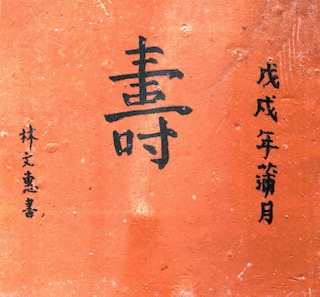 戊戌年蒲月
壽
林文惠書